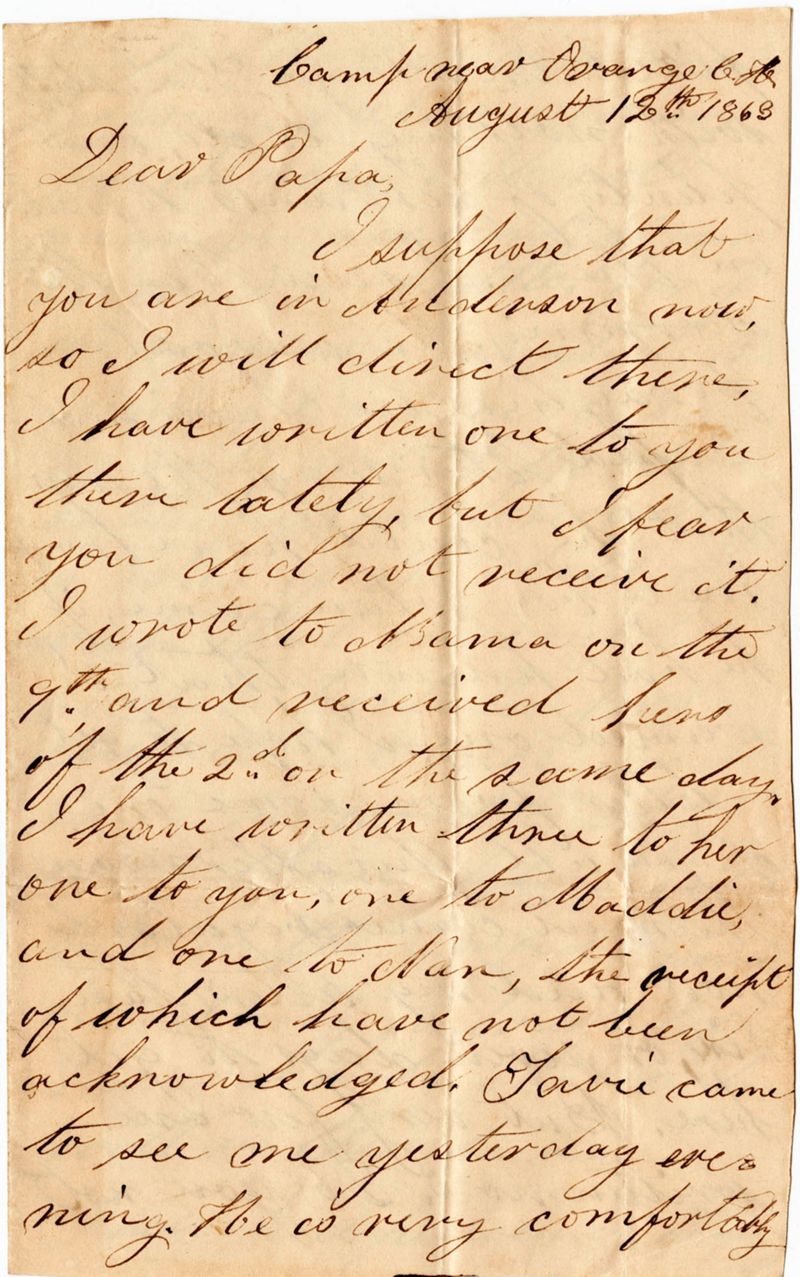 Camp near Orange C. H.
August 12th. 1863
Dear Papa,
I suppose that
you are in Anderson now,
so I will direct there,
I have written one to you
there lately, but I fear
you did not receive it.
I wrote to Mama on the
9th., and received hers
of the 2.d on the same day.
I have written three to her
one to you, one to Maddie,
and one to Nan, the receipt
of which have not been
acknowledged. Tavie came
to see me yesterday eve-
ning. He is very comfortably